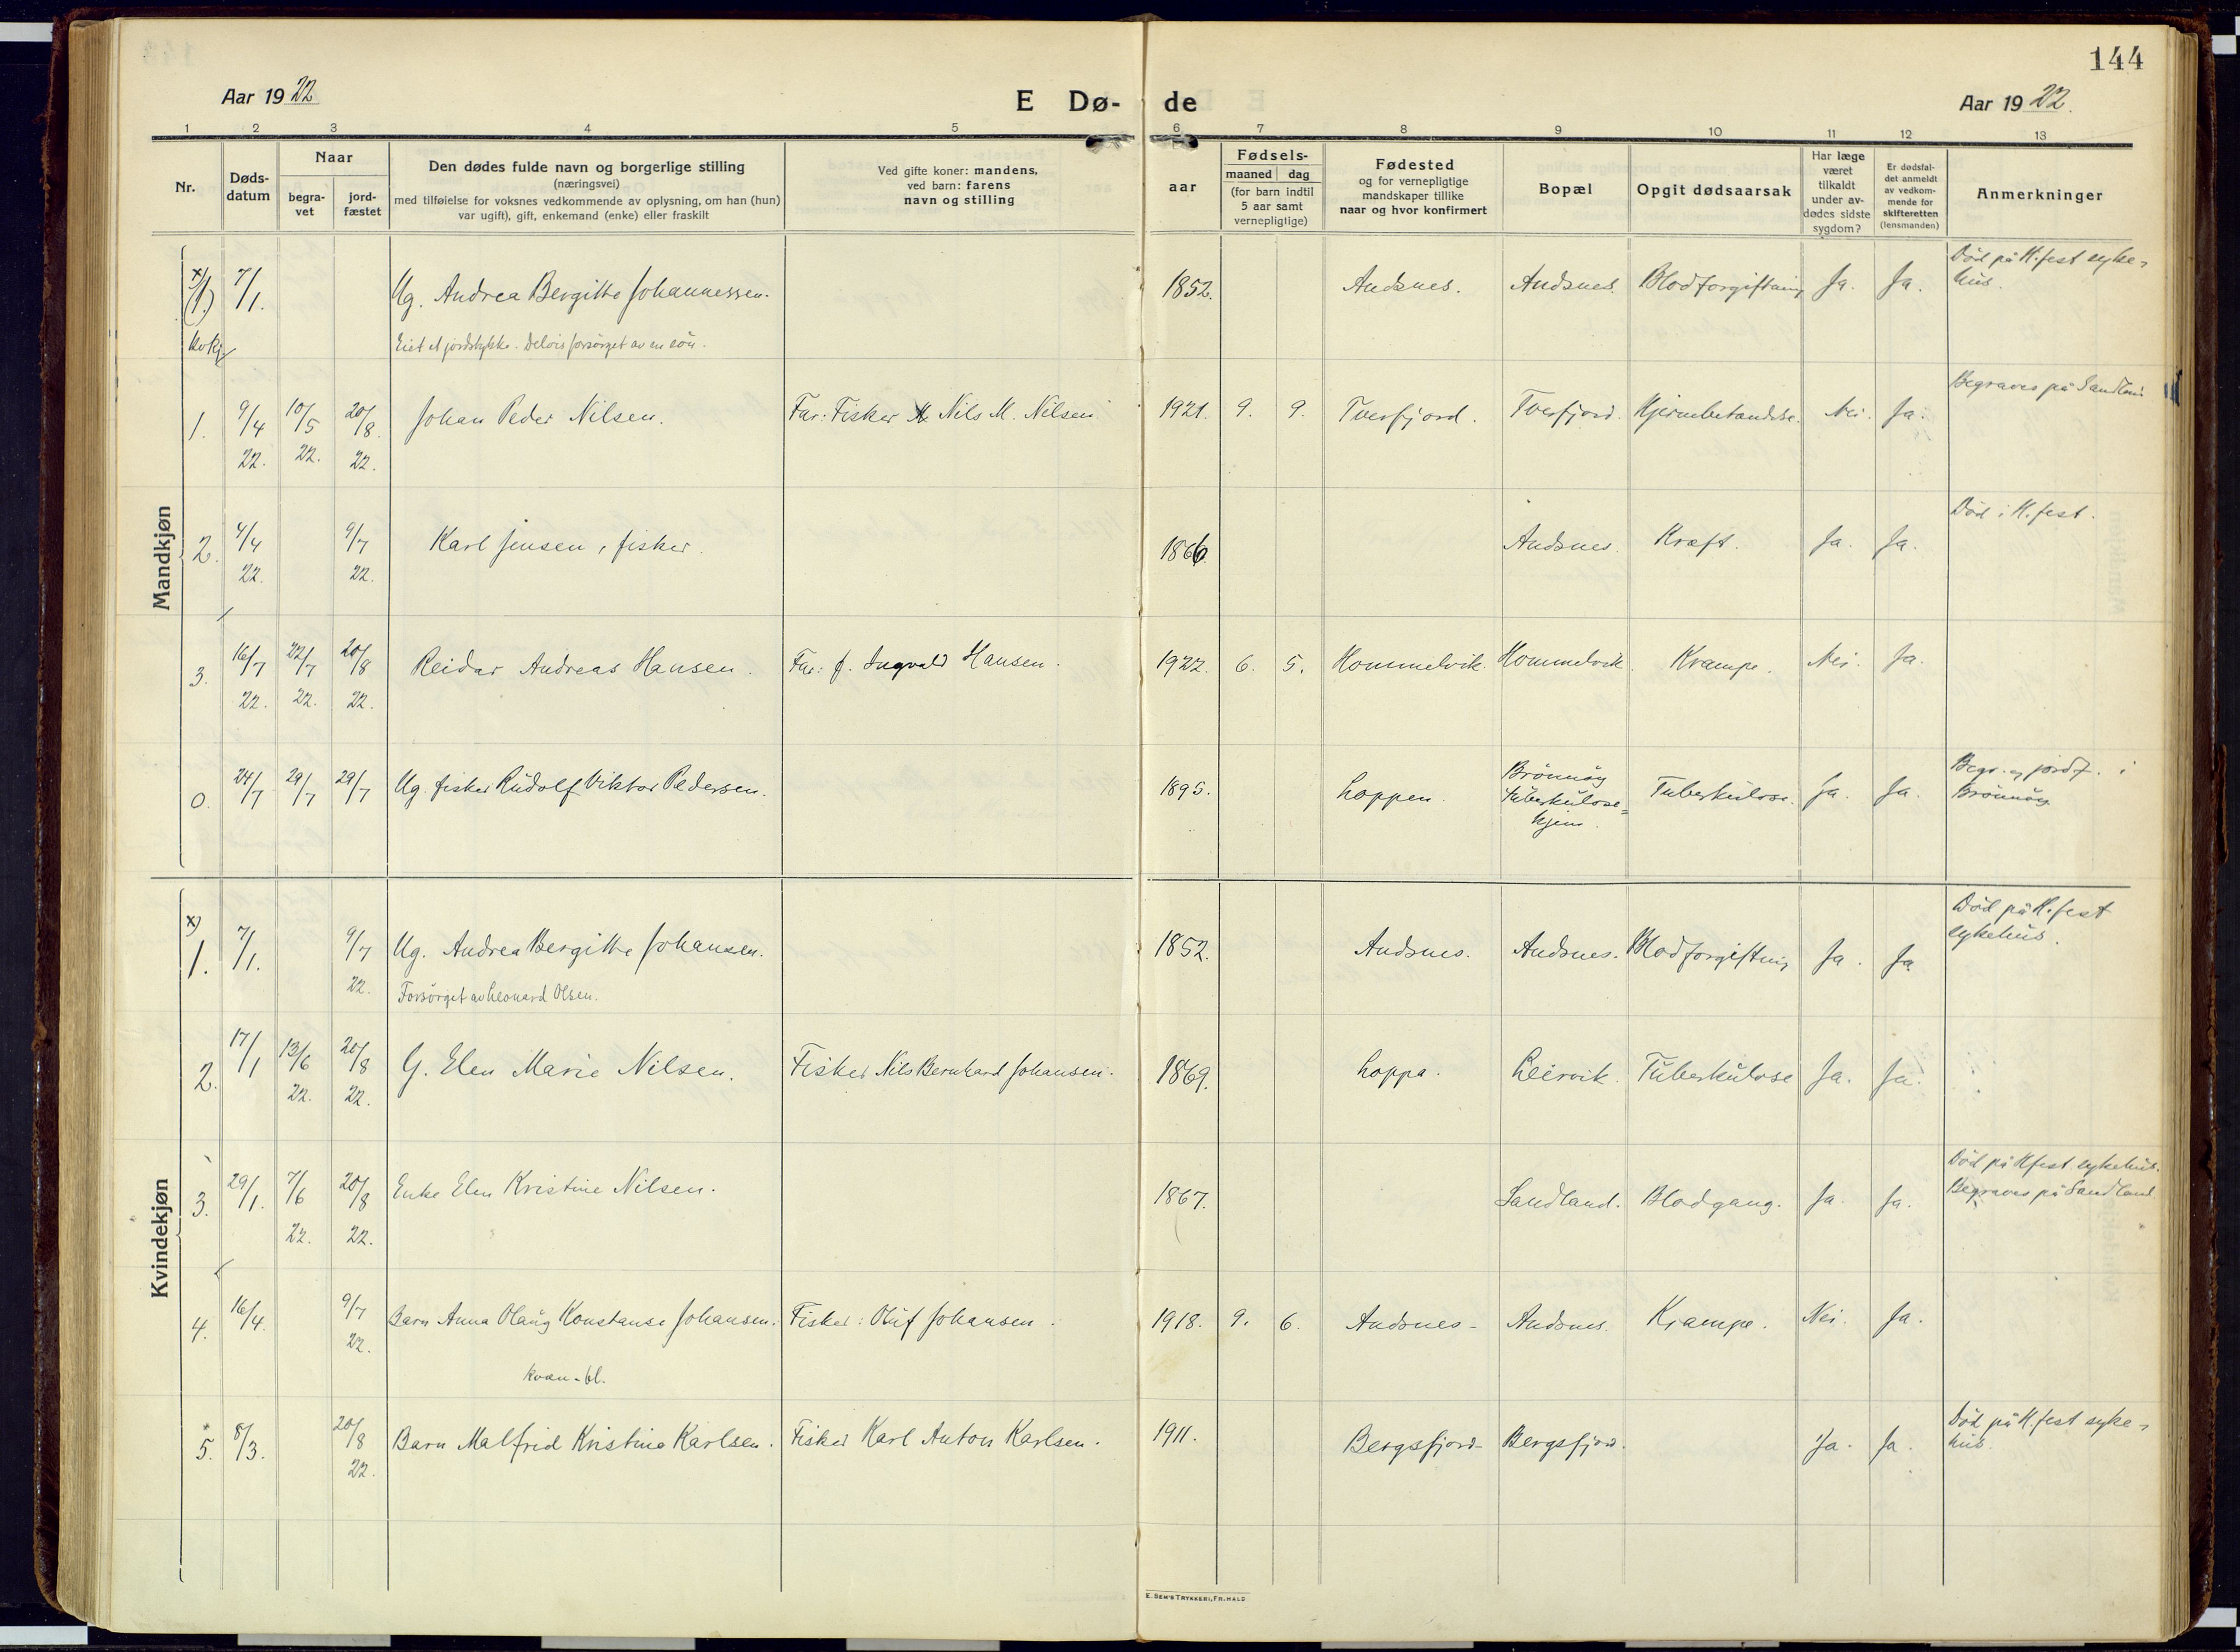 144
Aar 1922
E Dø- de
Aar 1922.
1 2 3 4 5 6 7 8 9 10 11 12 13
Nr.
Døds-
datum
Naar
begra-
vet
jord-
fæstet
Den dødes fulde navn og borgerlige stilling
(næringsvei)
med tilføielse for voksnes vedkommende av oplysning, om han (hun)
var ugift), gift, enkemand (enke) eller fraskilt
Ved gifte koner: mandens,
ved barn: farens
navn og stilling
aar
Fødsels-
maaned dag
(for barn indtil
5 aar samt
vernepligtige)
Fødested
og for vernepligtige
mandskaper tillike
naar og hvor konfirmert
Bopæl
Opgit dødsaarsak
Har læge
været
tilkaldt
under av-
dødes sidste
sygdom?
Er dødsfal-
det anmeldt
av vedkom-
mende for
skifteretten
(lensmanden)
Anmerkninger
Mandkjøn
x) (1.) 7/1. Ug. Andrea Bergitte Johannessen. 1852. Andsnes. Andsnes. Blodforgiftning Ja. Ja. Død på H.fest syke-
hus.
Kvkj Eiet et jordstykke. Delvis forsørget av en søn.
1. 9/4 22. 10/5 22. 20/8 22. Johan Peder Nilsen. Far: Fisker Nils M. Nilsen 1921. 9. 9. Tverfjord. Tverfjord. Hjernebetændelse. Nei. Ja. Begraves på Sandland
2. 4/4 22. 9/7 22. Karl Jensen, fisker. 1866. Andsnes. Kræft. Ja. Ja. Død i H.fest.
3. 16/7 22. 22/7 22. 20/8 22. Reidar Andreas Hansen. Far: f. Ingvald Hansen. 1922. 6. 5. Hommelvik. Hommelvik. Krampe. Nei. Ja.
0. 24/7 29/7 29/7 Ug. fisker Rudolf Viktor Pedersen. 1895. Loppen. Brönnöy
Tuberkulose-
hjem. Tuberkulose. Ja. Ja. Begr. og jordf. i
Brönnöy
Kvindekjøn
x) 1. 7/1. 9/7 22. Ug. Andrea Bergitte Johansen. 1852. Andsnes. Andsnes. Blodforgiftning Ja. Ja Død på H.fest
sykehus.
Forsørget av Leonard Olsen.
2. 17/1 13/6 22. 20/8 22. G. Elen Marie Nilsen. Fisker Nils Bernhard Johansen. 1869. Loppa. Leirvik. Tuberkulose Ja. Ja.
3. 29/1. 7/6 22. 20/8 22. Enke Elen Kristine Nilsen. 1867. Sandland. Blodgang. Ja. Ja. Død på H.fest sykehus.
Begraves på Sandland.
4. 16/4. 9/7 22. Barn Anna Olaug Konstanse Johansen. Fisker: Oluf Johansen. 1918. 9. 6. Andsnes. Andsnes. Krampe. Nei. Ja.
kvæn-bl.
5. 8/3. 20/8 22. Barn Malfrid Kristine Karlsen. Fisker Karl Anton Karlsen. 1911. Bergsfjord Bergsfjord. Ja. Ja. Død på H.fest syke-
hus.
E. SEM'S TRYKKERI, FR.HALD